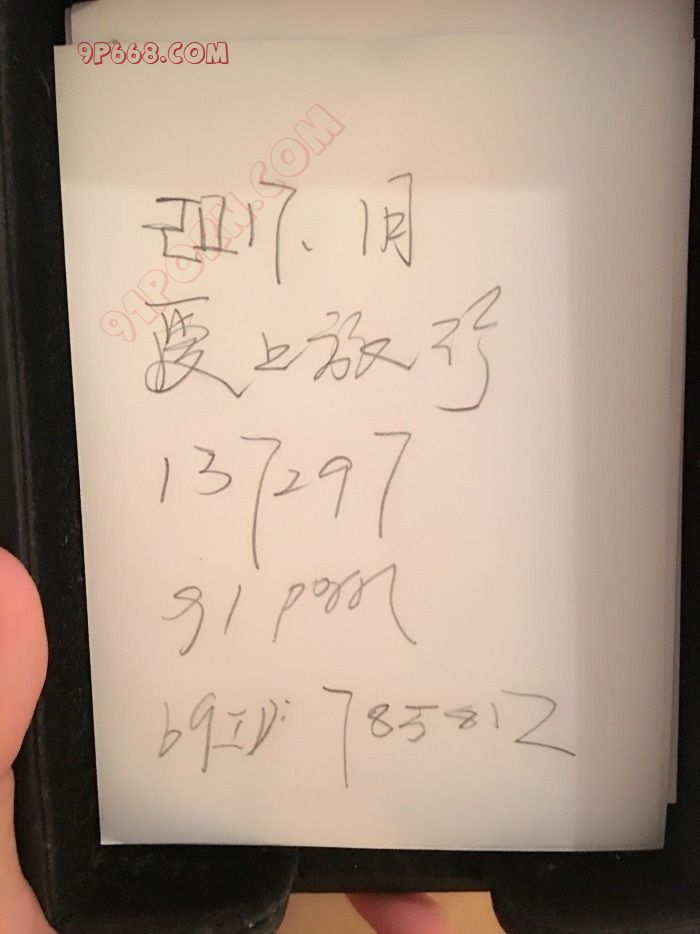 9P668.COM
91PORN.COM
2017、1月
爱上放行
137297
91 porn
69ID: 785812